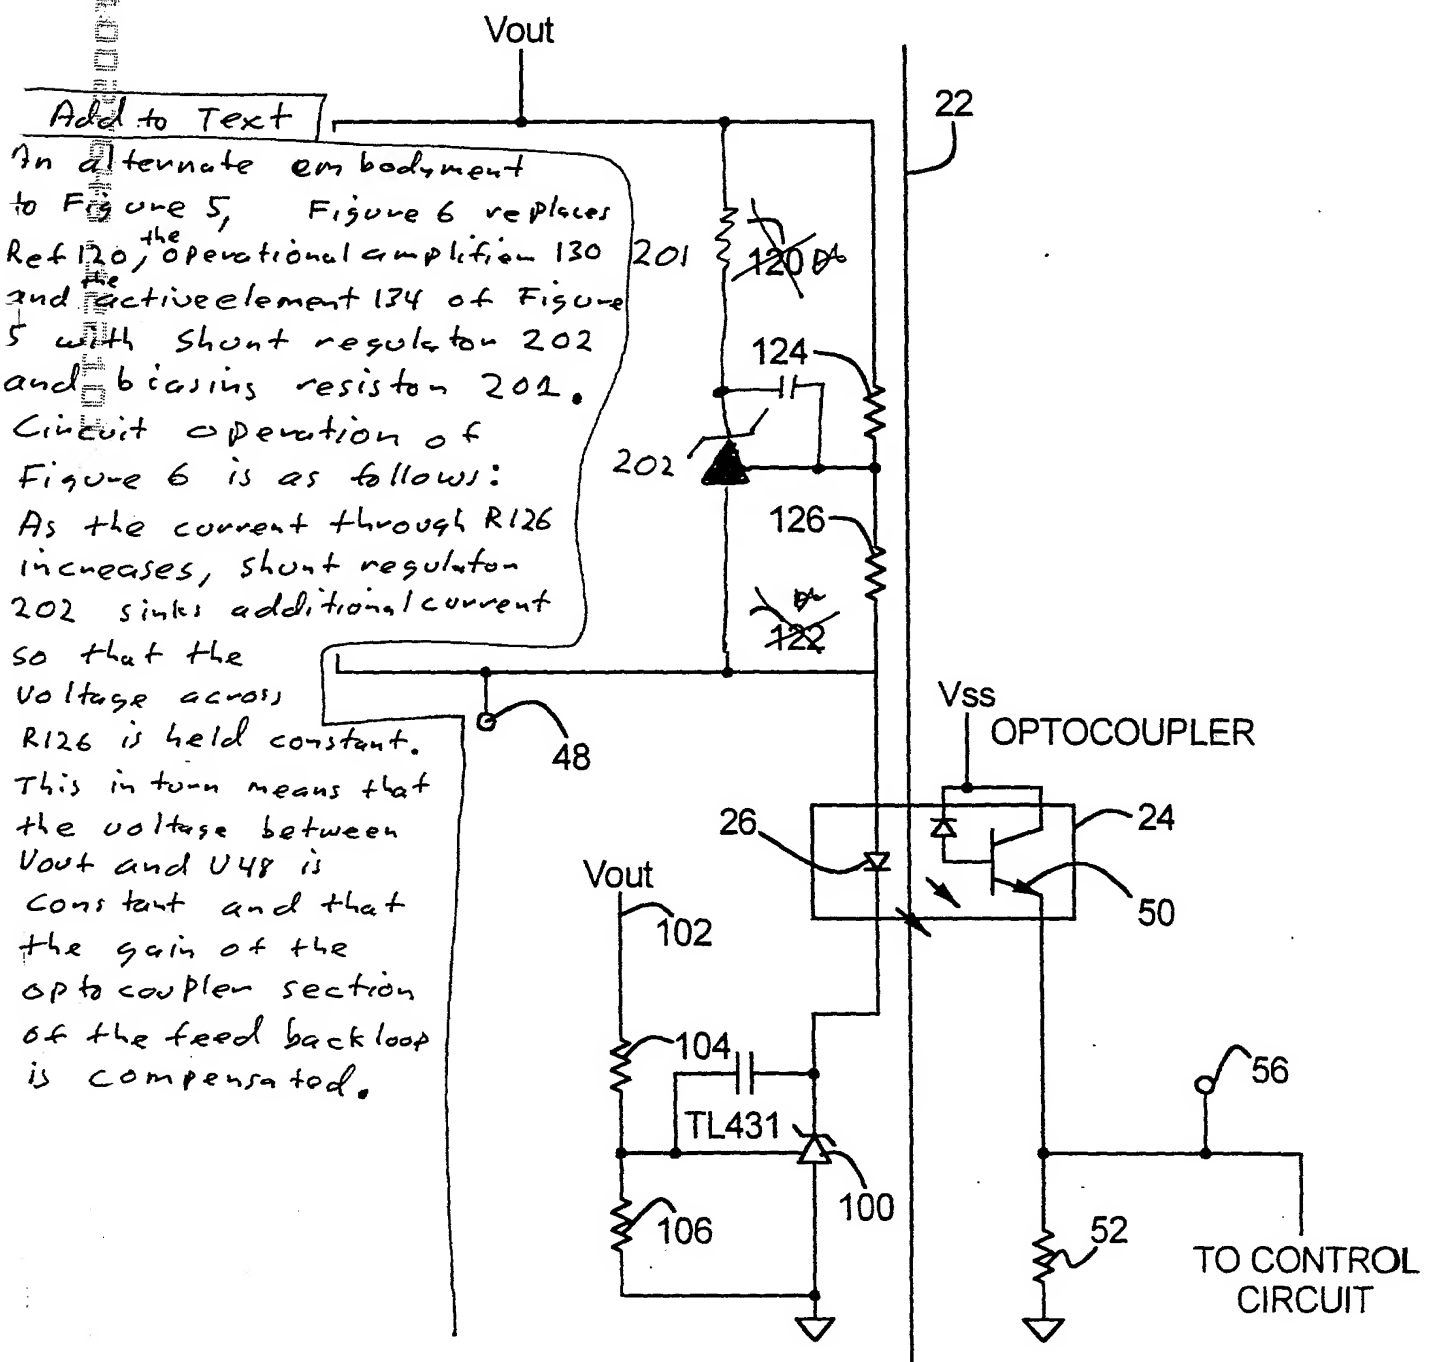 Vout
22
Add to Text
An alternate embodyment
to Figure 5, Figure 6 replaces
Ref 120, the operational amplifier 130
and the active element 134 of Figure
5 with shunt regulator 202
and biasing resistor 201.
Circuit operation of
Figure 6 is as follows:
As the current through R126
increases, shunt regulator
202 sinks additional current
so that the
voltage across
R126 is held constant.
This in turn means that
the voltage between
Vout and U48 is
constant and that
the gain of the
optocoupler section
of the feedback loop
is compensated.
201
120
124
202
126
122
48
Vss
OPTOCOUPLER
26
24
50
Vout
102
104
TL431
100
106
56
52
TO CONTROL
CIRCUIT